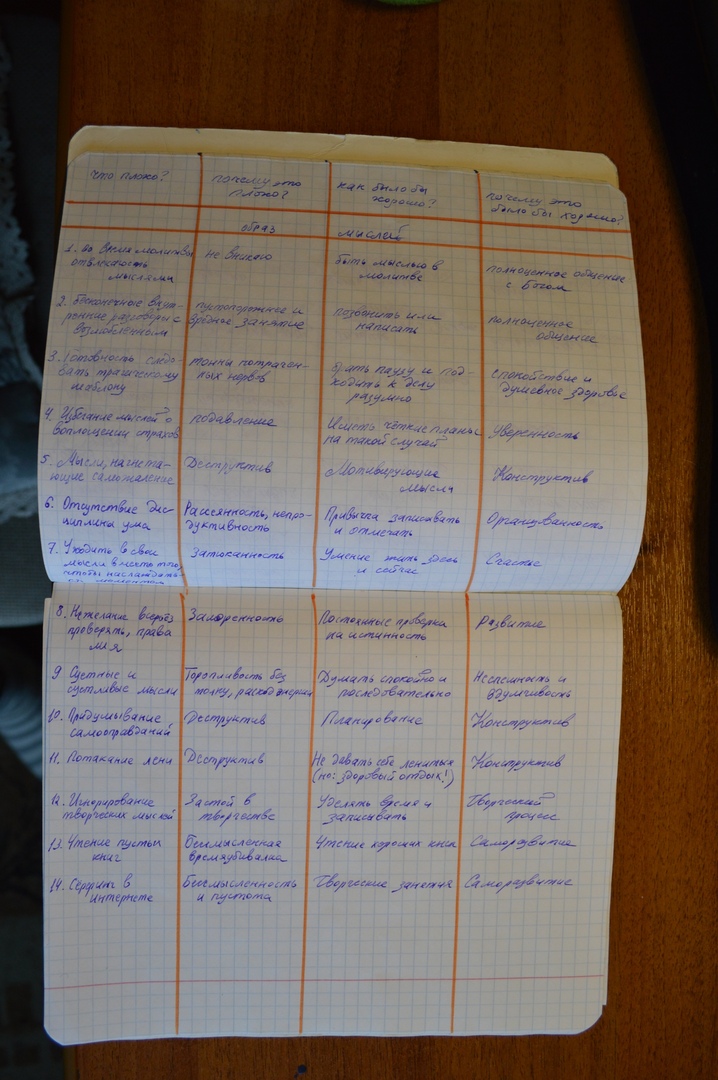 что плохо? почему это как было бы почему это
плохо? хорошо? было бы хорошо?
образ мыслей
1. во время молитвы не вникаю быть мыслью в полноценное общение
отвлекаюсь молитве с Богом
мыслями
2. бесконечные внут- пустопорожнее и позвонить или полноценное
ренние разговоры с вредное занятие написать общение
возлюбленным
3. готовность следо- тонны потрачен- брать паузу и под- спокойствие и
вать трагическому ных нервов ходить к делу душевное здоровье
шаблону разумно
4. Избегание мыслей о подавление Иметь чёткие планы Уверенность
воплощении страхов на такой случай
5. Мысли, нагнета- Деструктив Мотивирующие Конструктив
ющие самосожаление мысли
6. Отсутствие дис- Рассеянность, непро- Привычка записывать Организованность
циплины ума дуктивность и отмечать
7. Уходить в свои Затюканность Умение жить здесь Счастье
мысли вместо того, и сейчас
чтобы наслаждать-
ся моментом
8. Нежелание всерьёз Зашоренность Постоянные проверки Развитие
проверять, права на истинность
ли я
9. Суетные и Торопливость без Думать спокойно и Неспешность и
суетливые мысли толку, последовательно вдумчивость
10. Придумывание Деструктив Планирование Конструктив
самооправданий
11. Потакание лени Деструктив Не давать себе лениться Конструктив
(но: здоровый отдых!)
12. Игнорирование Застой в Уделять время и Творческий
творческих мыслей творчестве записывать процесс
13. Чтение пустых Бессмысленная Чтение хороших книг Саморазвитие
книг времяубивалка
14. Серфинг в Бессмысленность Творческие занятия Саморазвитие
интернете и пустота